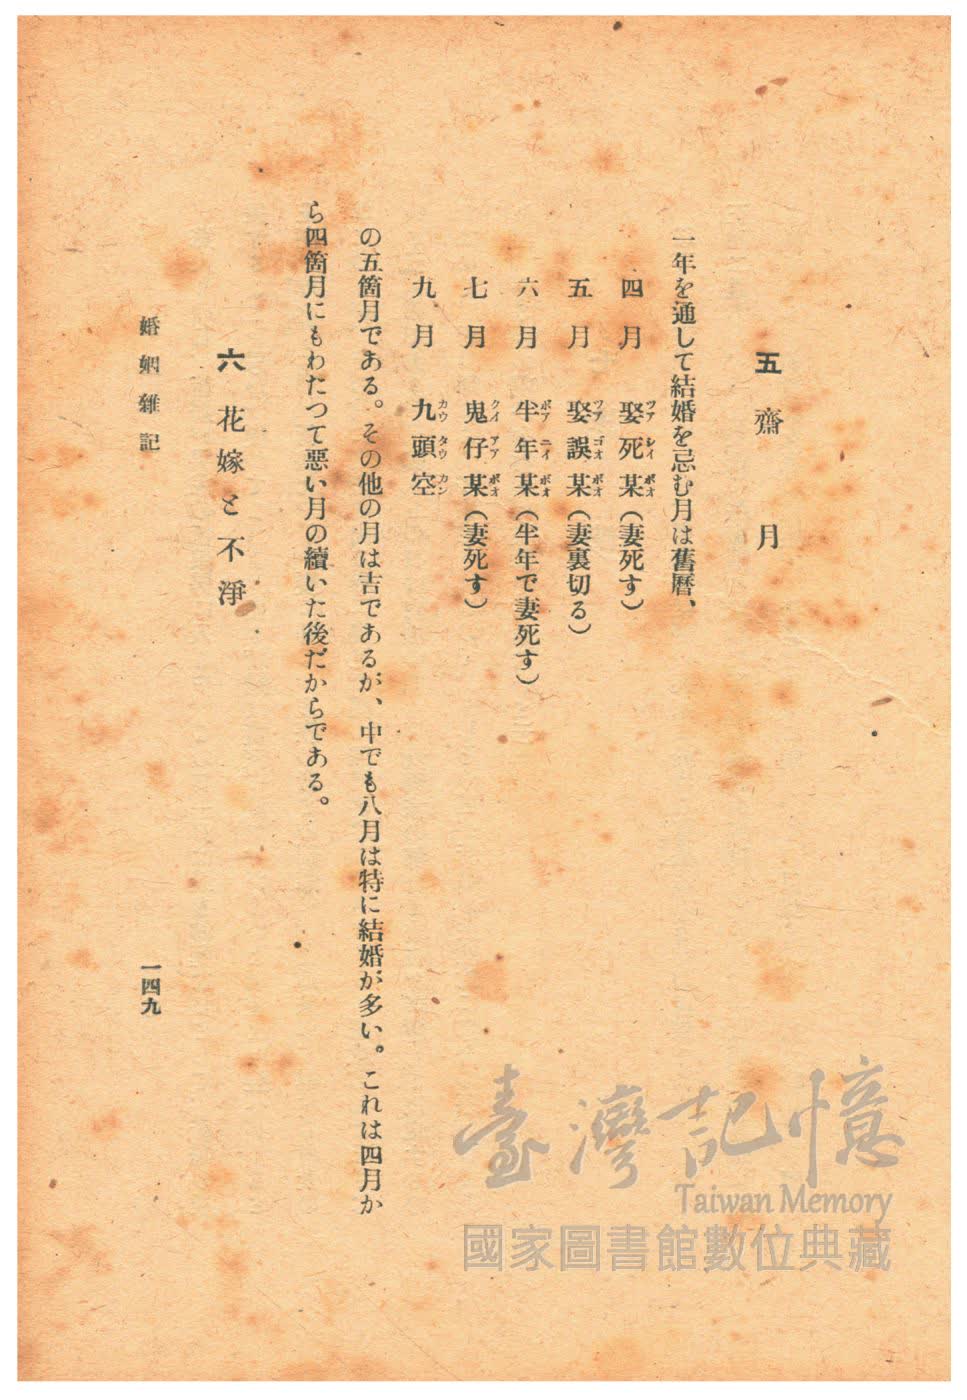 五 齋 月
一年を通して結婚を忌む月は舊曆、
四月 娶死某(妻死す)
ツア シイ ボオ
五月 娶誤某(妻裏切る)
ツア ゴオ ボオ
六月 半年某(半年で妻死す)
ボア ニイ ボオ
七月 鬼仔某(妻死す)
クイ アア ボオ
九月 九頭空
カウ タウ カン
の五箇月である。その他の月は吉であるが、中でも八月は特に結婚が多い。これは四月か
ら四箇月にもわたつて惡い月の續いた後だからである。
六 花嫁と不淨
婚姻雜記
一四九
臺灣記憶
Taiwan Memory
國家圖書館數位典藏